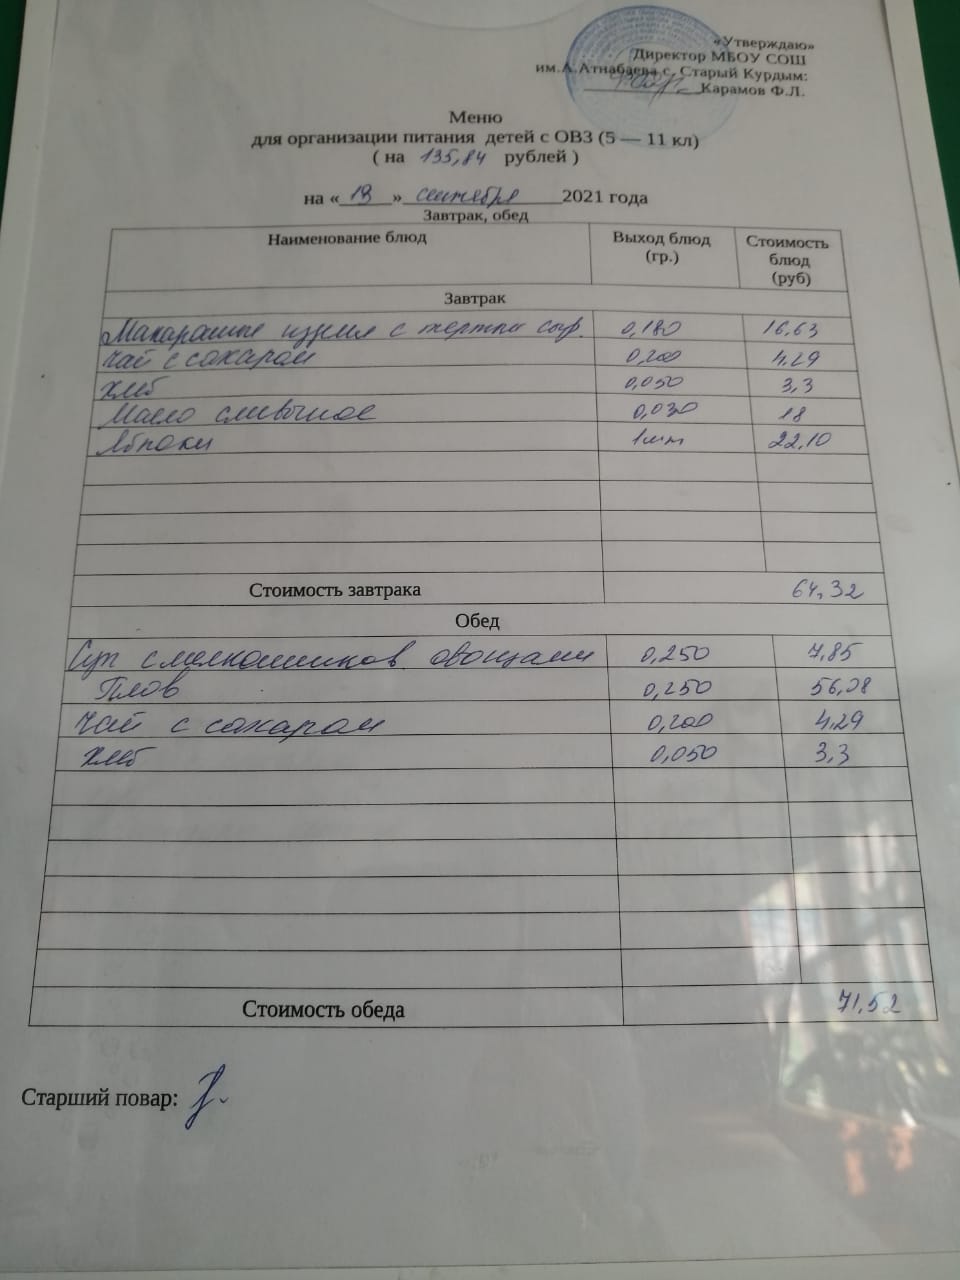 «Утверждаю»
Директор МБОУ СОШ
им.А.Атнабаева с. Старый Курдым:
Карамов Ф.Л.
Меню
для организации питания детей с ОВЗ (5 — 11 кл)
( на 135,84 рублей )
на « 13 » сентября 2021 года
Завтрак, обед
Наименование блюд Выход блюд (гр.) Стоимость блюд (руб)
Завтрак
Макаронные изделия с тертым сыр. 0,180 16,63
Чай с сахаром 0,200 4,29
Хлеб 0,050 3,3
Масло сливочное 0,030 18
Яблоки 1шт 22,10
Стоимость завтрака 64,32
Обед
Суп с мелкошинков. овощами 0,250 7,85
Плов 0,250 56,08
Чай с сахаром 0,200 4,29
Хлеб 0,050 3,3
Стоимость обеда 71,52
Старший повар: